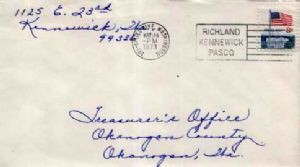 1125 E. 23rd
Kennewick, Wn.
99336
PM
RICHLAND
KENNEWICK
PASCO
Treasurer's Office
Okanogan County
Okanogan, Wn.